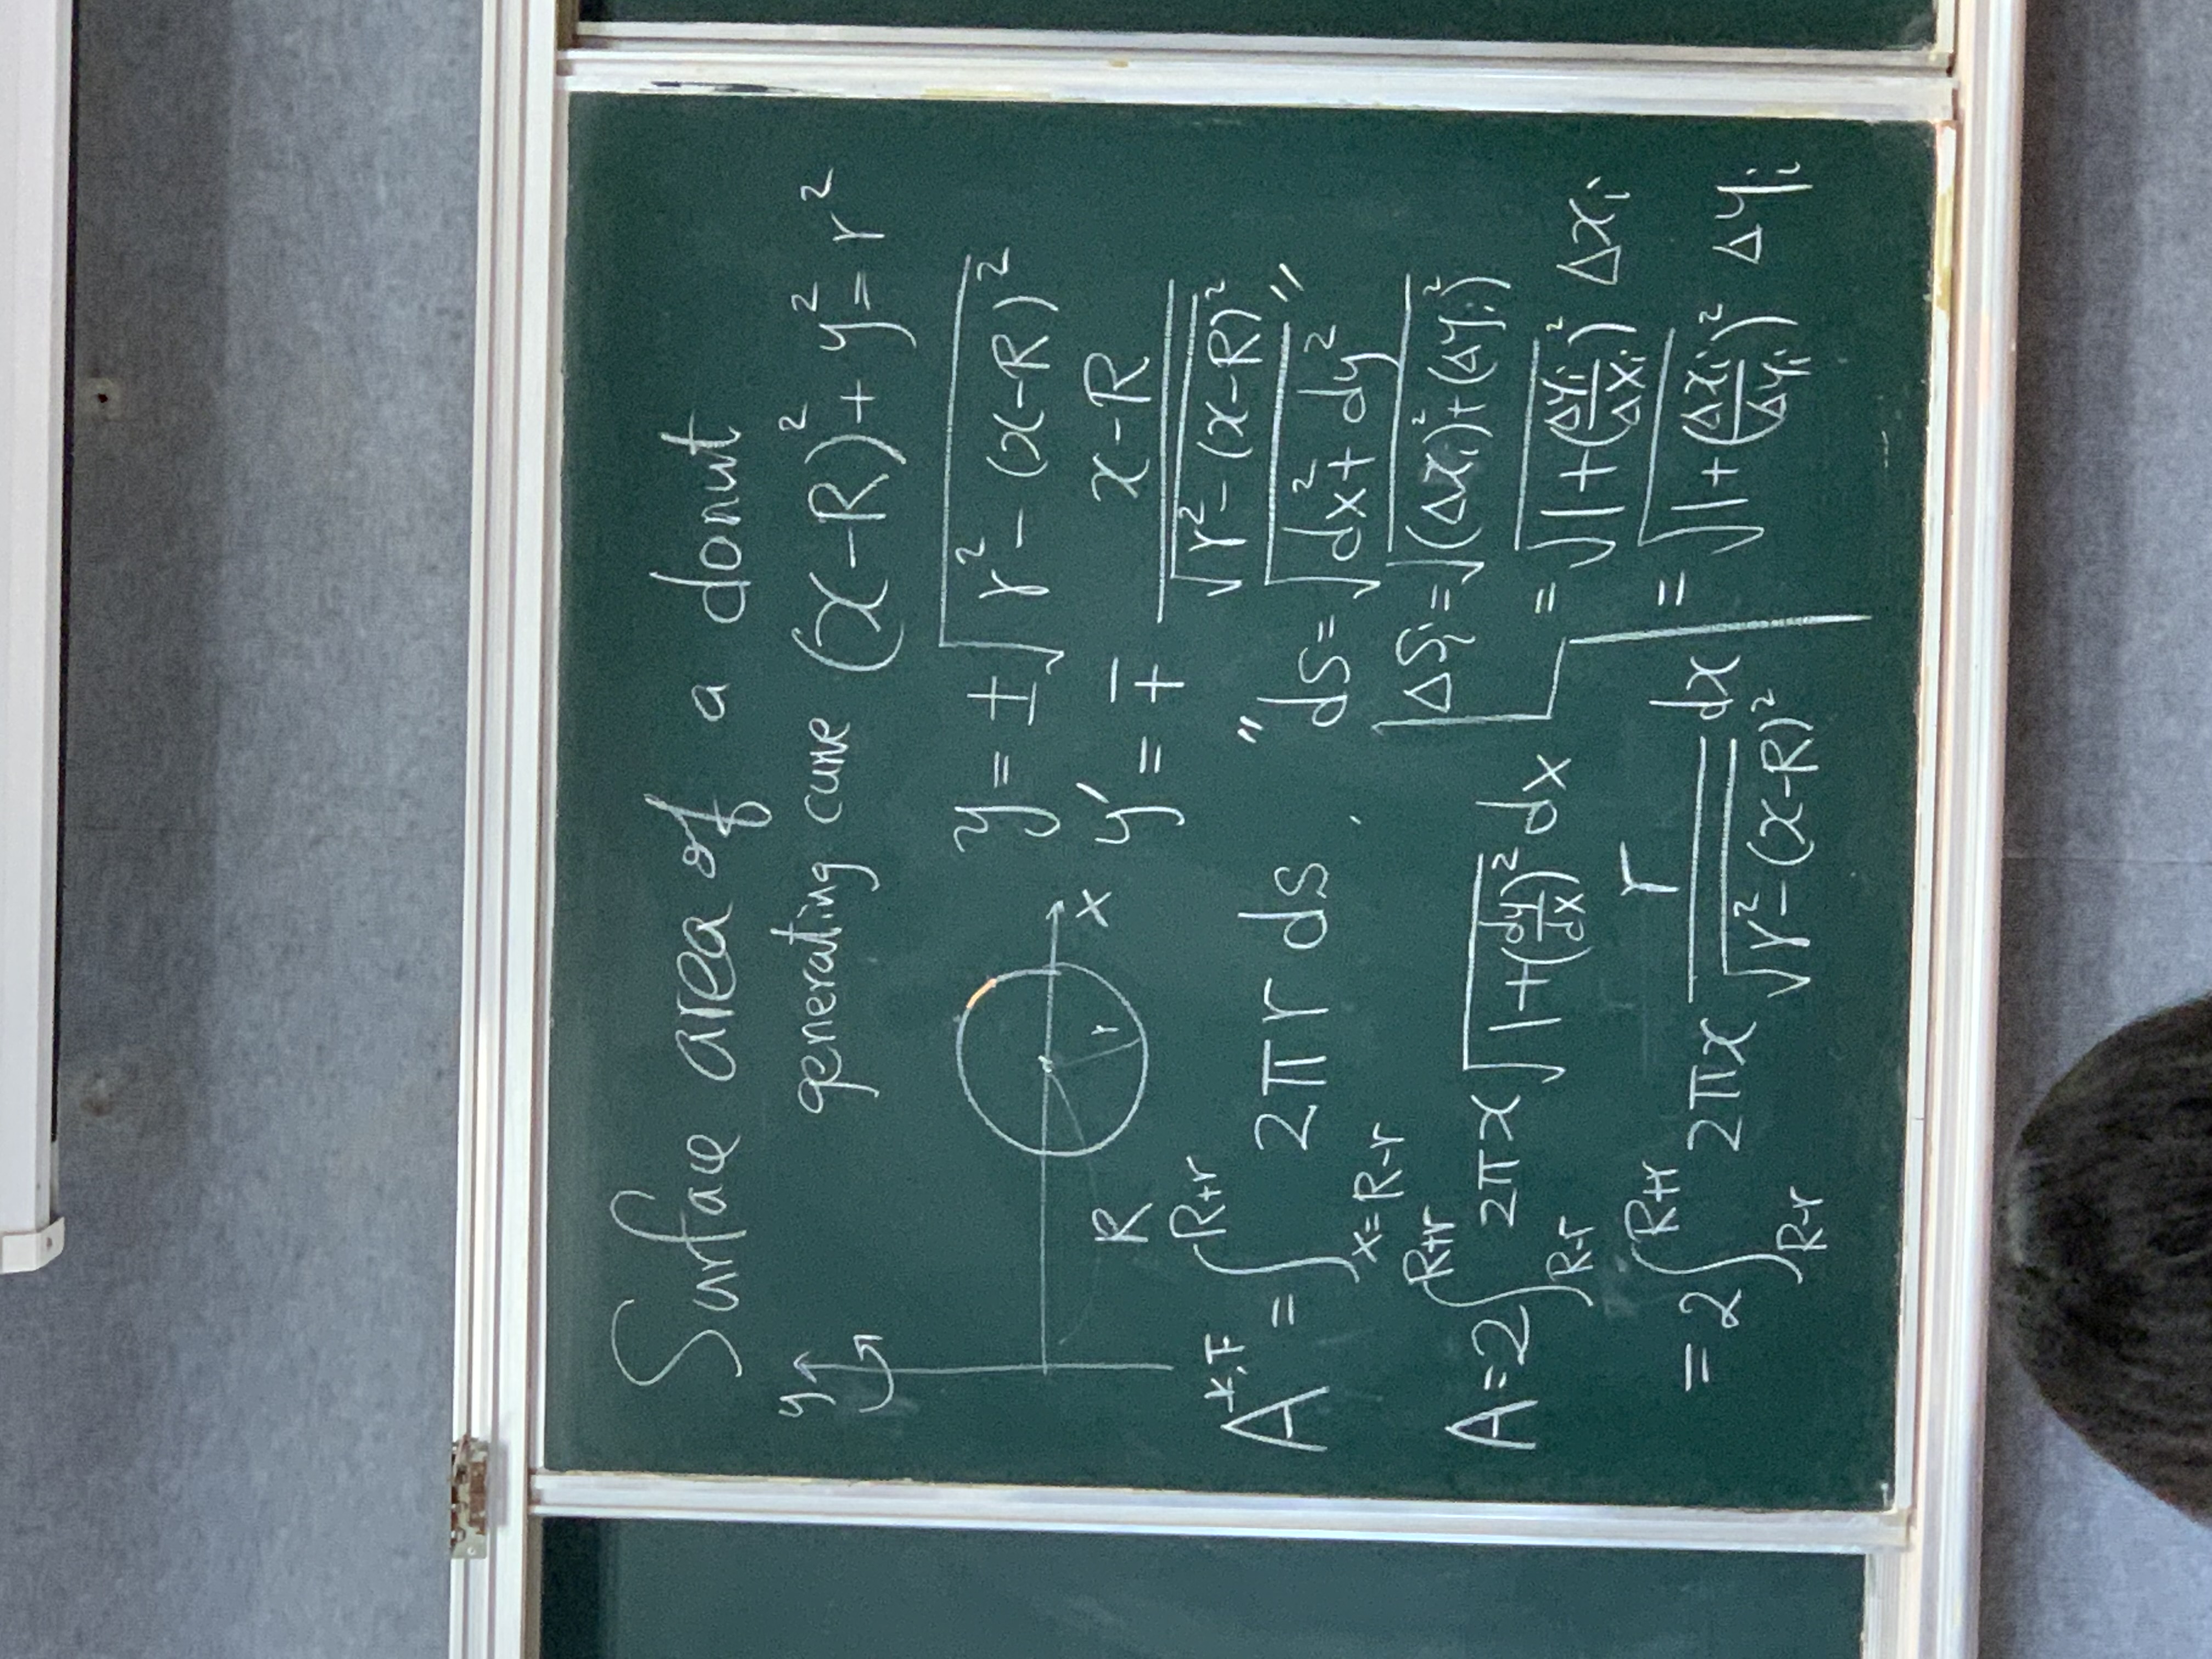 Surface area of a donut
generating curve (x-R)² + y² = r²
y
x
R
r
y = ±√(r² - (x-R)²)
y' = ∓ (x-R)/√(r² - (x-R)²)
" ds = √(dx² + dy²) "
A = ∫_{x=R-r}^{R+r} 2πr ds
ΔSᵢ = √((Δxᵢ)² + (Δyᵢ)²)
= √(1+(Δyᵢ/Δxᵢ)²) Δxᵢ
= √(1+(Δxᵢ/Δyᵢ)²) Δyᵢ
A = 2∫_{R-r}^{R+r} 2πx √(1+(dy/dx)²) dx
= 2∫_{R-r}^{R+r} 2πx r/√(r²-(x-R)²) dx